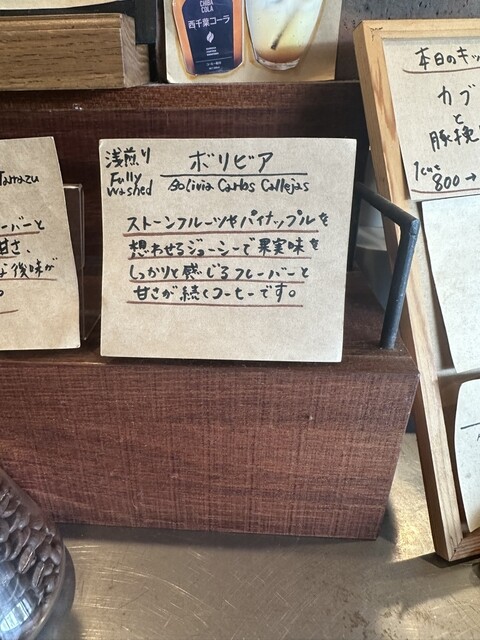 CHIBA
COLA
西千葉コーラ
本日のキッ
カブ
と
豚挽
800→
Tarrazu
ーバーと
甘さ、
な後味が
。
浅煎り
Fully
Washed
ボリビア
Bolivia Carlos Callejas
ストーンフルーツやパイナップルを
想わせるジューシーで果実味を
しっかりと感じるフレーバーと
甘さが続くコーヒーです。